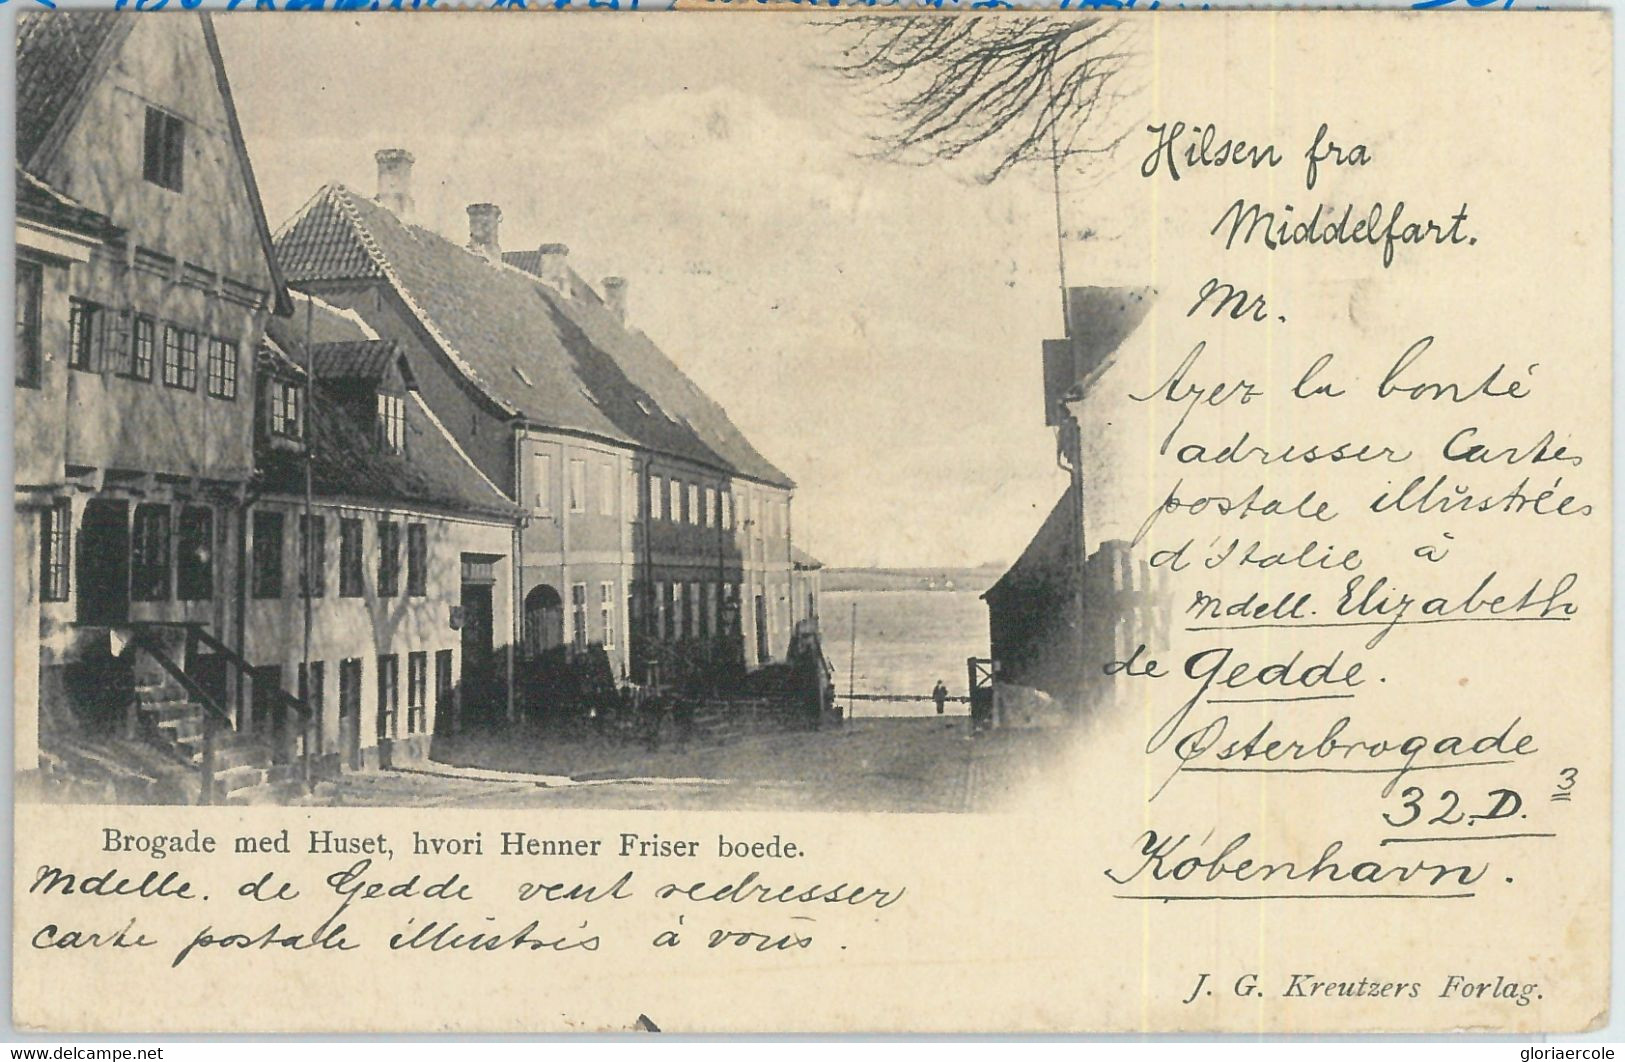 Hilsen fra
Middelfart.
Mr.
Ayez la bonté
adresser Cartes
postale illustrées
d'Italie à
Mdell. Elizabeth
de Gedde.
Østerbrogade
32.D. 3
København.
Brogade med Huset, hvori Henner Friser boede.
Mdelle. de Gedde veut redresser
carte postale illustrés à vous.
J. G. Kreutzers Forlag.
www.delcampe.net
gloriaercole